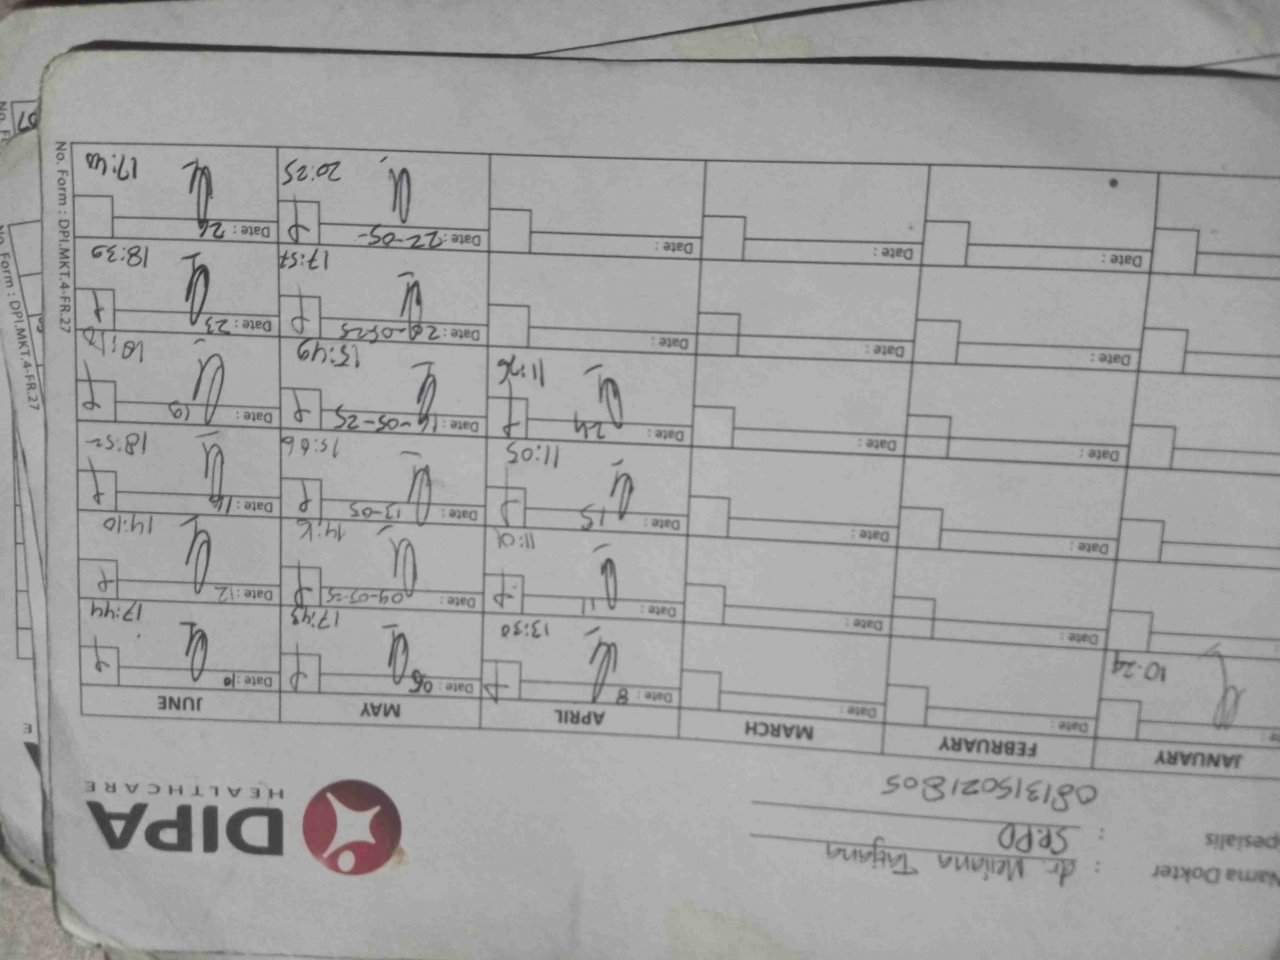 DIPA
HEALTHCARE
Nama Dokter : dr. Meilana Tatjana
Spesialis : SP.PD
081315021805
JANUARY FEBRUARY MARCH APRIL MAY JUNE
Date: Date: Date: Date: 8 Date: 06 Date: 10
10.24 13:30 17:43 17:44
Date: Date: Date: 11 Date: 09-05-25 Date: 12
11:01 14:10
Date: Date: Date: 15 Date: 13-05 Date: 16
11:05 18:52
Date: Date: Date: 24 Date: 16-05-25 Date: 19
11:26 15:49
Date: Date: Date: Date: 20-05-25 Date: 23
17:57 18:39
Date: Date: Date: Date: 22-05- Date: 26
20:25 17:40
No. Form : DPI.MKT.4-FR.27
No. Form : DPI.MKT.4-FR.27